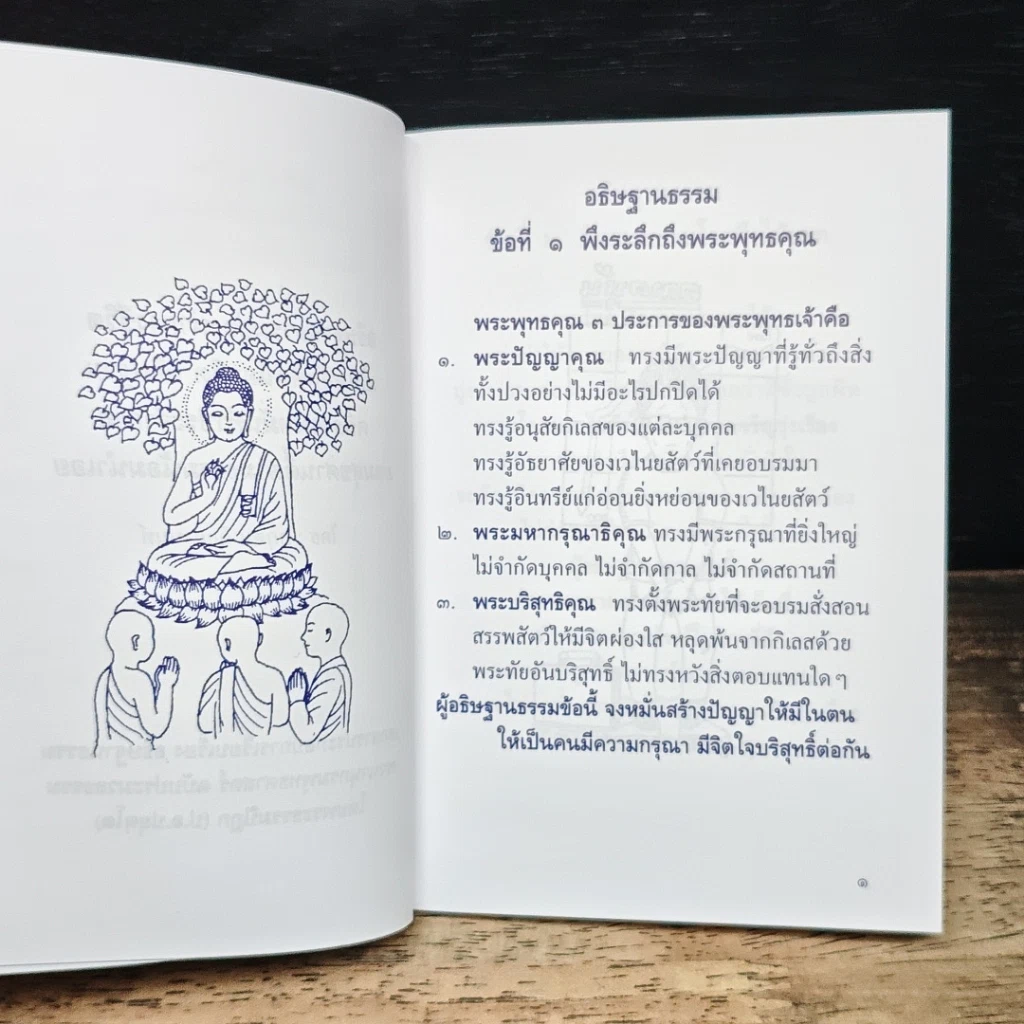 อธิษฐานธรรม
ข้อที่ ๑ พึงระลึกถึงพระพุทธคุณ
พระพุทธคุณ ๓ ประการของพระพุทธเจ้าคือ
๑. พระปัญญาคุณ ทรงมีพระปัญญาที่รู้ทั่วถึงสิ่ง
ทั้งปวงอย่างไม่มีอะไรปกปิดได้
ทรงรู้อนุสัยกิเลสของแต่ละบุคคล
ทรงรู้อัธยาศัยของเวไนยสัตว์ที่เคยอบรมมา
ทรงรู้อินทรีย์แก่อ่อนยิ่งหย่อนของเวไนยสัตว์
๒. พระมหากรุณาธิคุณ ทรงมีพระกรุณาที่ยิ่งใหญ่
ไม่จำกัดบุคคล ไม่จำกัดกาล ไม่จำกัดสถานที่
๓. พระบริสุทธิคุณ ทรงตั้งพระทัยที่จะอบรมสั่งสอน
สรรพสัตว์ให้มีจิตผ่องใส หลุดพ้นจากกิเลสด้วย
พระทัยอันบริสุทธิ์ ไม่ทรงหวังสิ่งตอบแทนใด ๆ
ผู้อธิษฐานธรรมข้อนี้ จงหมั่นสร้างปัญญาให้มีในตน
ให้เป็นคนมีความกรุณา มีจิตใจบริสุทธิ์ต่อกัน
๑